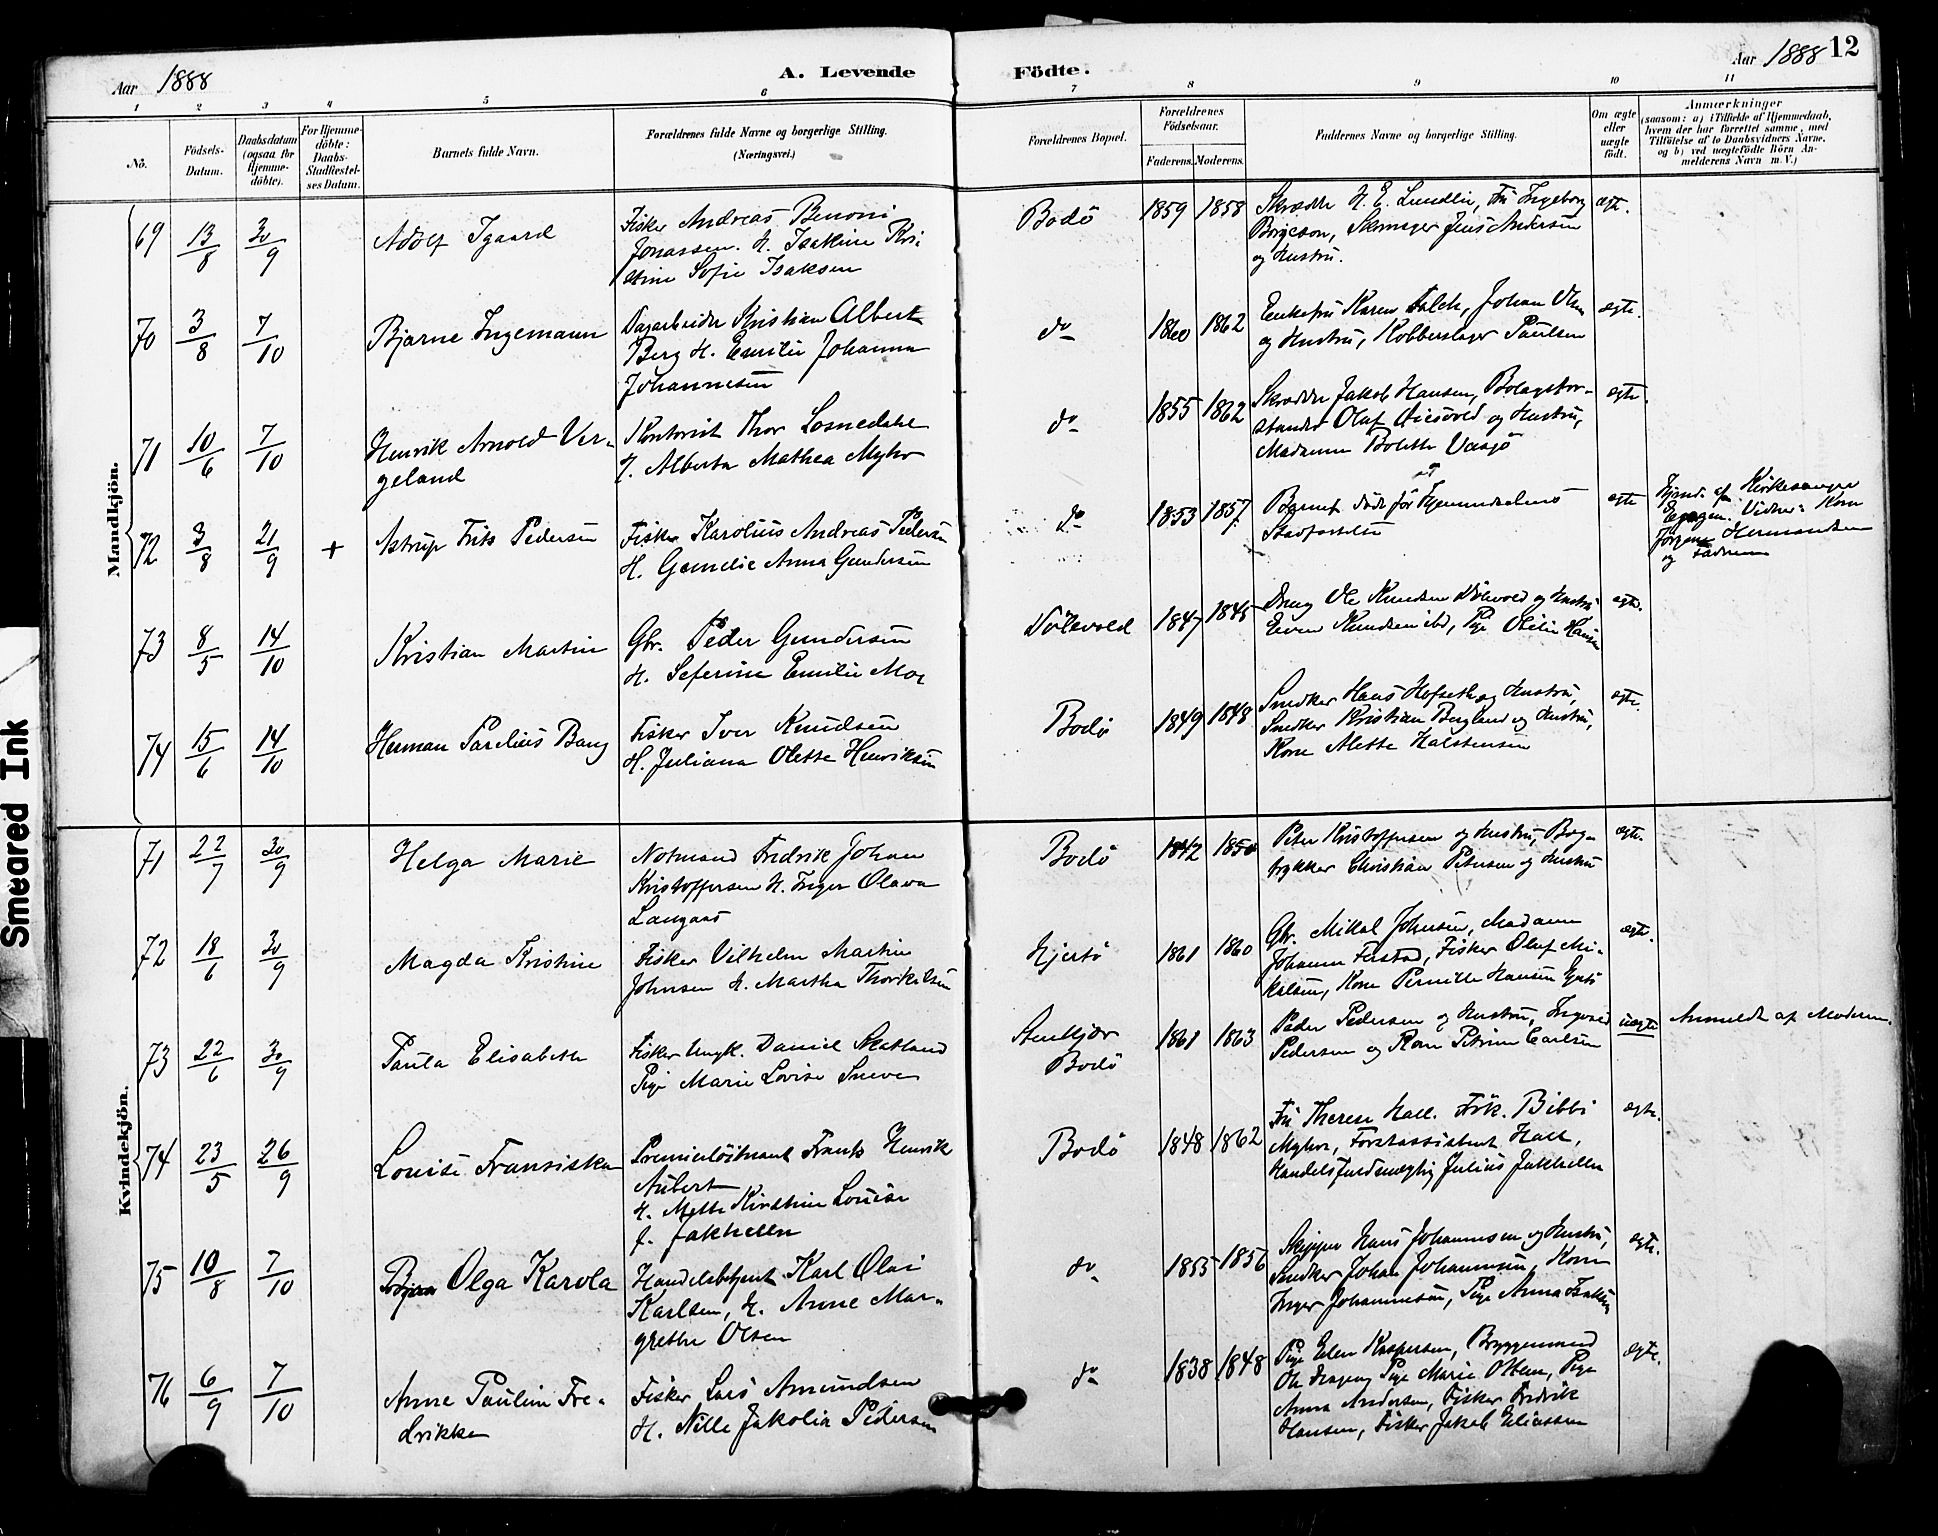 Aar 1888
A. Levende
Födte.
Aar 1888 12
1 2 3 4 5 6 7 8 9 10 11
No. Födsels-Datum. Daabsdatum (ogsaa for Hjemme-döbte). For Hjemme-döbte: Daabs-Stadfæstel-ses Datum. Barnets fulde Navn. Forældrenes fulde Navne og borgerlige Stilling. (Næringsvei.) Forældrenes Bopæl. Forældrenes Födselsaar. Faderens. Moderens. Faddernes Navne og borgerlige Stilling. Om ægte eller uægte födt. Anmærkninger (saasom: a) i Tilfælde af Hjemmedaab, hvem der har forrettet samme, med Tilföielse af to Daabsvidners Navne, og b) ved uægtefödte Börn An-melderens Navn m. V.)
Mandkjön.
69 13/8 30/9 Adolf Igaard
Fisker Andreas Benoni
Jonassen. H. Isakine Kri-
stine Sofie Isaksen
Bodö 1859 1858
Skrædder H. E. Lundlin, Fru Ingeborg
Borgeson, Skomager Jens Andersen
og Hustru.
ægte.
70 3/8 7/10 Bjarne Ingemann
Dagarbeider Kristian Albert
Berg H. Emilie Johanna
Johannesen
do 1860 1862
Enkefru Karen Falch, Johan Olsen
og Hustru, Kobberslager Paulsen
ægte.
71 10/6 7/10 Henrik Arnold Ver-
geland
Kontorist Thor Losnedahl
H. Alberta Mathea Myhr
do 1855 1862
Skrædder Jakob Hansen,
Olaf og Hustru,
Madamme Bolette
ægte.
72 3/8 21/9 + Astrup Frits Pedersen
Fisker Karolius Andreas Pedersen
H. Anna Gundersen
do 1853 1857
Barnet död för Hjemmedaabens
Stadfæstelse
ægte
Hjemd. af Kirkesanger
Vidner: Kone
Hermansen
og Faderen
73 8/5 14/10 Kristian Martin
Gbr. Peder Gundersen
H. Seferine Emilie Moe
1847 1845
Ole Knudsen og Hustru
Even Knudsen ibd, Pige Otilie Hansen
ægte.
74 15/6 14/10 Herman Parelius Bang
Fisker Iver Knudsen
H. Juliana Olette Henriksen
Bodö 1849 1848
Snedker Hans Hofseth og Hustru,
Snedker Kristian Berglund og Hustru,
Kone Alette Halstensen
ægte.
Kvindekjön.
71 22/7 30/9 Helga Marie
Notmand Fredrik Johan
Kristoffersen H. Inger Olava
Langaas
Bodö 1842 1850
Peter Kristoffersen og Hustru, Bog-
trykker Christian Petersen og Hustru
ægte.
72 18/6 30/9 Magda Kristine
Fisker Vilhelm Martin
Johnsen H. Martha Thorkilsen
Hjertö 1861 1860
Gbr. Mikal Johnsen, Madam
Johanna, Fisker Olaf Mi-
kalsen, Kone Pernille Hansen
ægte.
73 22/6 30/9 Paula Elisabeth
Fisker Ungk. Daniel Skatland
Pige Marie Lovise Sneve
Stenkjær
Bodö
1861 1863
Peder Pedersen og Hustru, Ingvald
Pedersen og Kone Petrine Carlsen
uægte Anmeldt af Moderen.
74 23/5 26/9 Louise Fransiska
Premierlöitnant Frants Henrik
Aubert
H. Mette Kirstine Louise
f. Jakhelln
Bodö 1848 1862
Fru Therese Hall. Frk. Bibbi
Myhre, Forstassistent Hall,
Handelsfuldmægtig Julius Jakhelln
ægte.
75 10/8 7/10 Olga Karola
Handelsbetjent Karl Olai
Karlsen, H. Anne Mar-
grethe Olsen
do 1855 1856
Skipper Hans Johannesen og Hustru,
Snedker Johan Johannesen, Kone
Inger Johannesen, Pige Anna Isaksen
ægte.
76 6/9 7/10 Anne Pauline Fre-
drikke
Fisker Lars Amundsen
H. Nille Jakolia Pedersen
do 1838 1848
Pige Elen Kaspersen, Bryggemand
Pige Marie Olsen, Pige
Anna Andersen, Fisker Fredrik
Hansen, Fisker Jakob Eliassen
ægte.
Smeared Ink